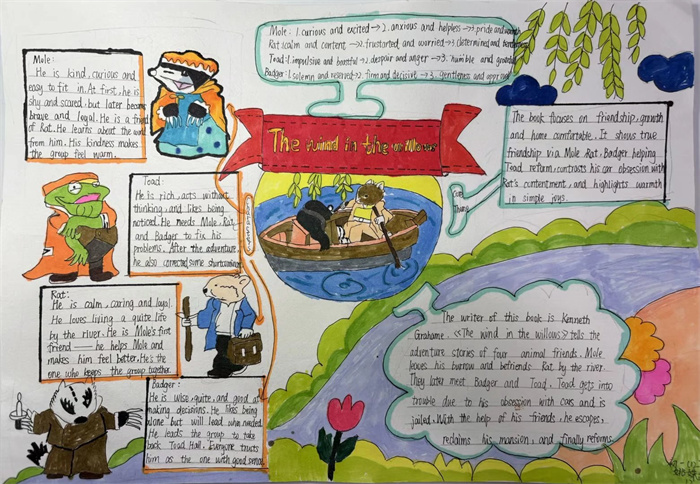 Mole: 1. curious and excited → 2. anxious and helpless → 3. pride and warmth
Rat: 1. calm and content → 2. frustarted and worried → 3. determined and
Toad: 1. impulsive and boastful → 2. despair and anger → 3. humble and grateful
Badger: 1. solemn and reserved → 2. firm and decisive → 3. gentleness and approval
Mole:
He is kind, curious and
easy to fit in. At first, he is
shy and scared, but later became
brave and loyal. He is a friend
of Rat. He learns about the world
from him. His kindness makes
the group feel warm.
The wind in the willows
The book focuses on friendship, growth
and home comfortable. It shows true
friendship via Mole, Rat, Badger helping
Toad reform, contrasts his car obsession with
Rat's contentment, and highlights warmth
in simple joys.
Toad:
He is rich, acts without
thinking, and likes being
noticed. He needs Mole, Rat
and Badger to fix his
problems. After the adventure,
he also corrected some shortcomings
Rat:
He is calm, caring and loyal.
He loves living a quite life
by the river. He is Mole's first
friend — he helps Mole and
makes him feel better. He's the
one who keeps the group together.
Badger:
He is wise, quite, and good at
making decisions. He likes being
alone but will lead when needed.
He leads the group to take
back Toad Hall. Everyone trusts
him as the one with good sense.
The writer of this book is Kenneth
Grahame. 《The wind in the willows》 tells the
adventure stories of four animal friends. Mole
leaves his burrow and befriends Rat by the river.
They later meet Badger and Toad. Toad gets into
trouble due to his obsession with cars and is
jailed. With the help of his friends, he escapes,
reclaims his mansion, and finally reforms.